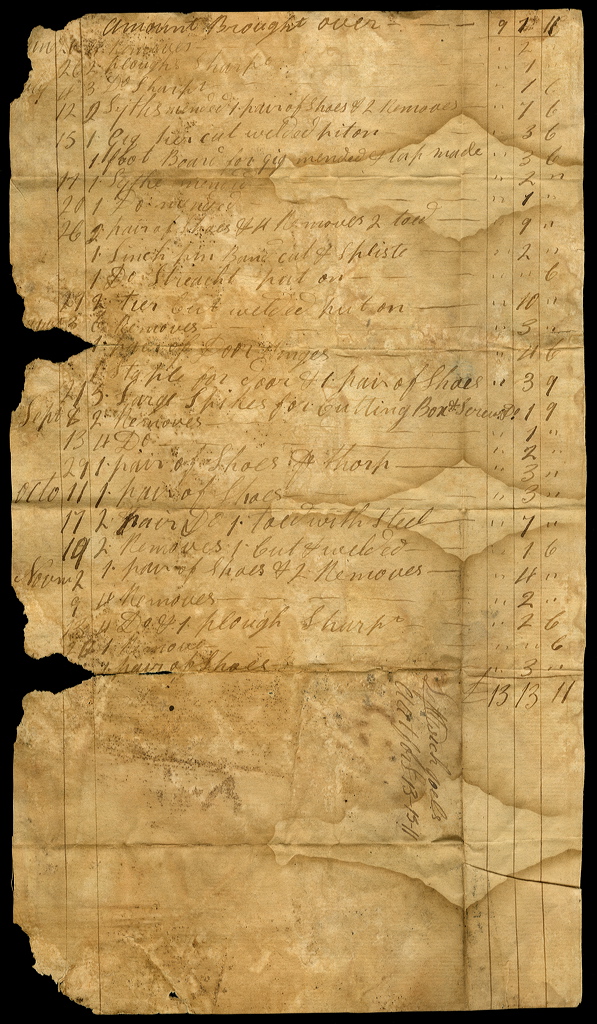 Amount Brought over — — 9 1 11
Removes — " 2 "
26 2 ploughs Sharpd " 1 "
4 3 Do Sharpd " 1 6
12 2 Syths mended 1 pair of Shoes & 2 Removes — " 7 6
15 1 Gig tier cut welded put on " 3 6
1 foot Board for gig mended & tap made " 3 6
17 1 Sythe mended " 2 "
20 1 Do mended " 1 "
26 2 pair of Shoes & 4 Removes 2 toed — " 9 "
1 Sinch pin Band cut & Spliste " 2 "
1 Do Streacht put on — " " 6
29 2 tier cut welded put on — " 10 "
6 Removes — " 3 "
1 pair of Door hinges " 4 6
1 Staple for door & 1 pair of Shoes " 3 9
21 3 Large Spikes for Cutting Box & Screw " 1 9
Sept 8 2 Removes — " 1 "
13 4 Do — " 2 "
29 1 pair of Shoes & thorp — " 3 "
octo 11 1 pair of Shoes — " 3 "
17 2 pair Do 1 toed with Steel — " 7 "
19 2 Removes 1 Cut & welded — " 1 6
Novm 2 1 pair of Shoes & 2 Removes — " 4 "
9 4 Removes — " 2 "
4 Do & 1 plough Sharpn — " 2 6
1 Remove " " 6
1 pair of Shoes — " 3 "
£ 13 13 11
13-13-11